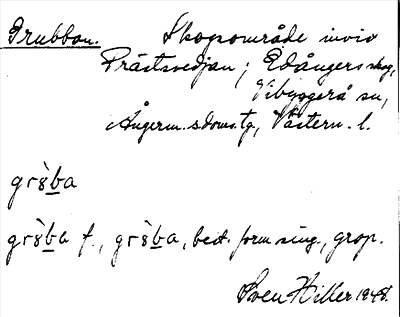 Grubban. Skogsområde invid
Prästsvedjan; Edångers skog,
Vibyggerå sn,
Ångerm. s. doms. tg, Västern. l.
grꞌ8̀ba
gr8̀ba f., gr8̀ba, best. form sing., grop.
Sven Hiller 1948.